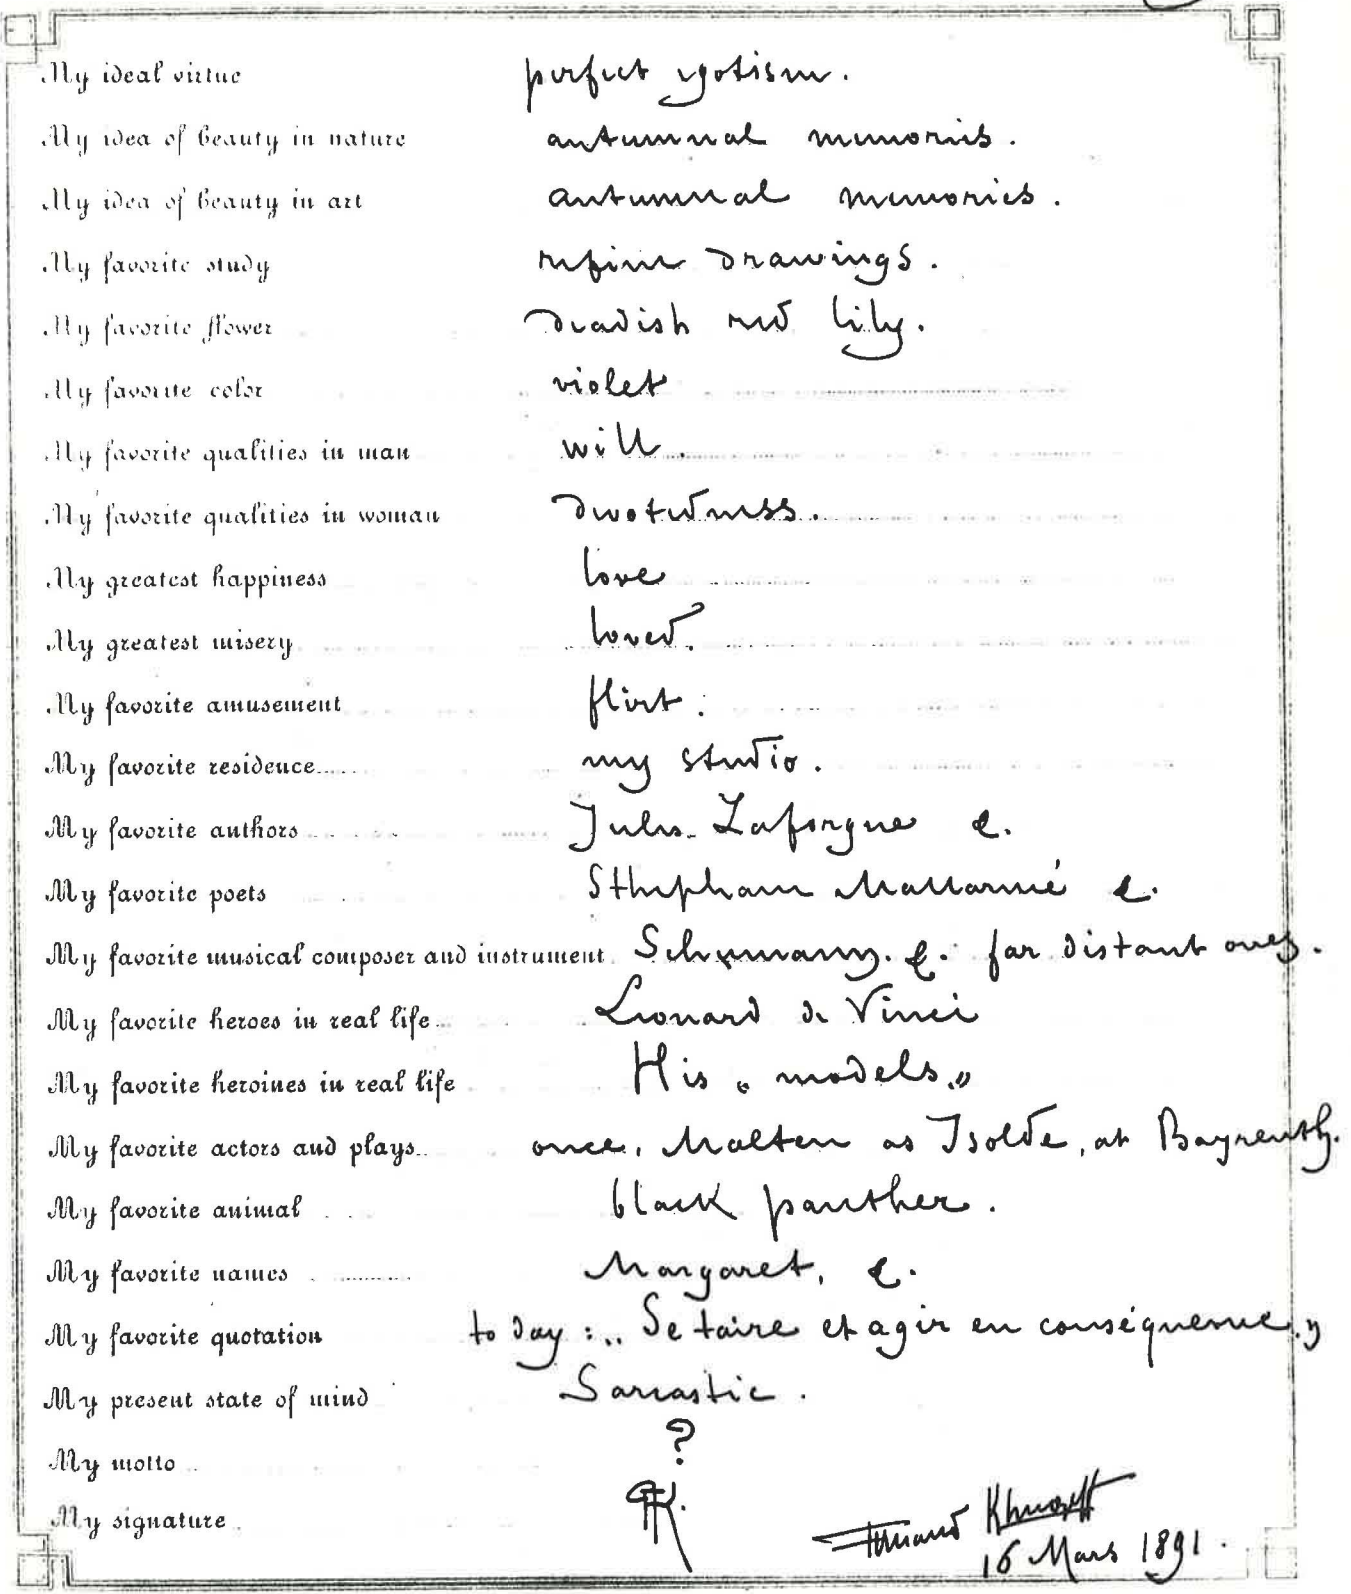 My ideal virtue perfect egotism.
My idea of beauty in nature autumnal memories.
My idea of beauty in art autumnal memories.
My favorite study refine drawings.
My favorite flower deadish red lily.
My favorite color violet
My favorite qualities in man will.
My favorite qualities in woman devotedness.
My greatest happiness love
My greatest misery loved.
My favorite amusement flirt.
My favorite residence my studio.
My favorite authors Jules Laforgue &.
My favorite poets Sthephane Mallarmé &.
My favorite musical composer and instrument Schumann. &. far distant ones.
My favorite heroes in real life Leonard de Vinci
My favorite heroines in real life His "models"
My favorite actors and plays once, Malten as Isolde, at Bayreuth.
My favorite animal black panther.
My favorite names Margaret, &.
My favorite quotation to day : "Se taire et agir en conséquence."
My present state of mind Sarcastic.
My motto ?
My signature FK. Fernand Khnopff
16 Mars 1891.